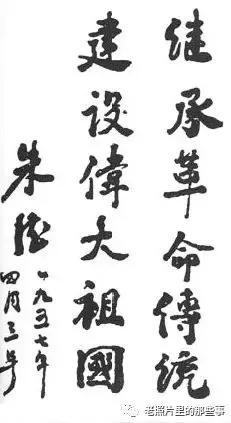 继承革命傳统
建设偉大祖國
朱德
一九五七年
四月三号
老照片里的那些事